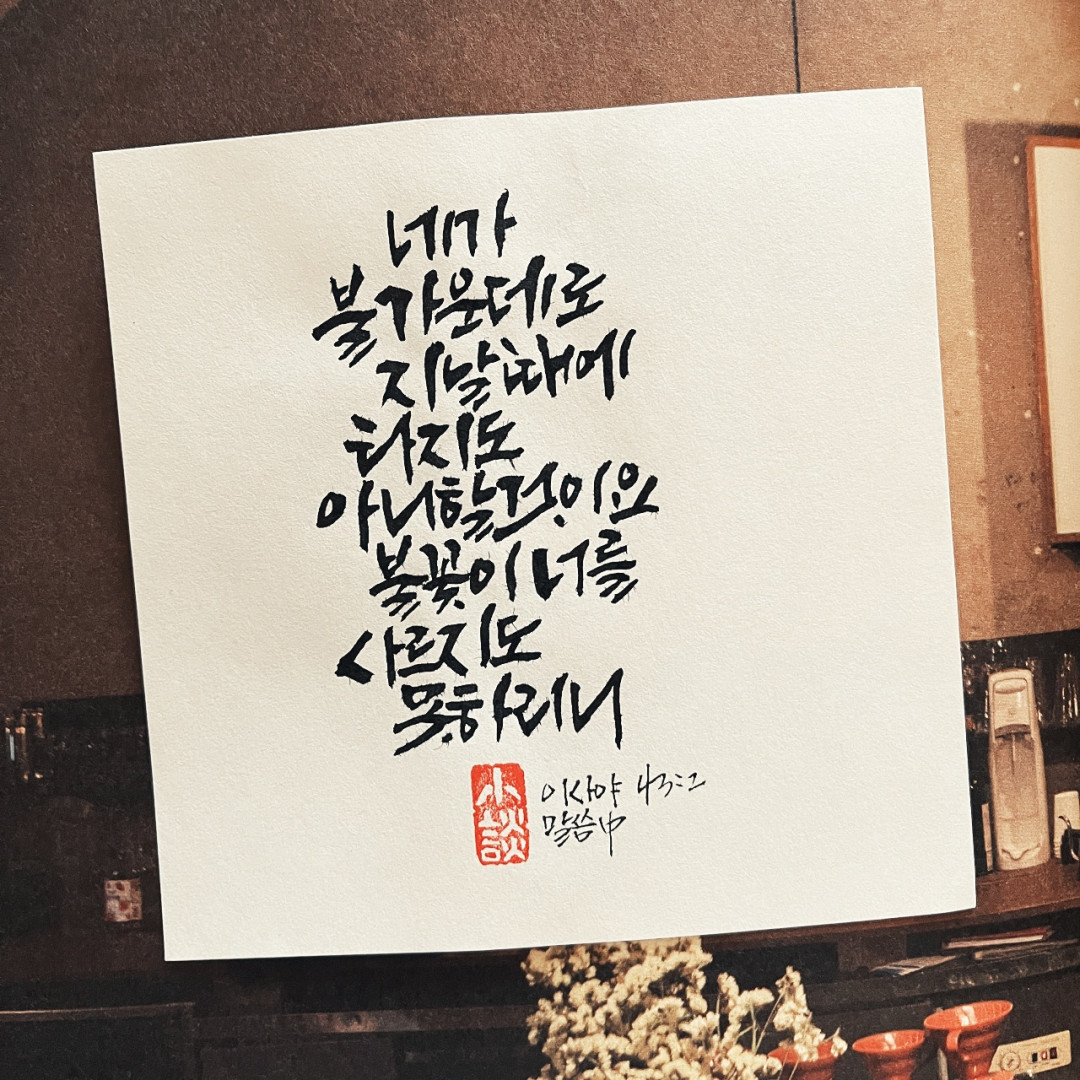 네가
불가운데로
지날때에
타지도
아니할것이요
불꽃이 너를
사르지도
못하리니
小談
이사야 43:2
말씀中